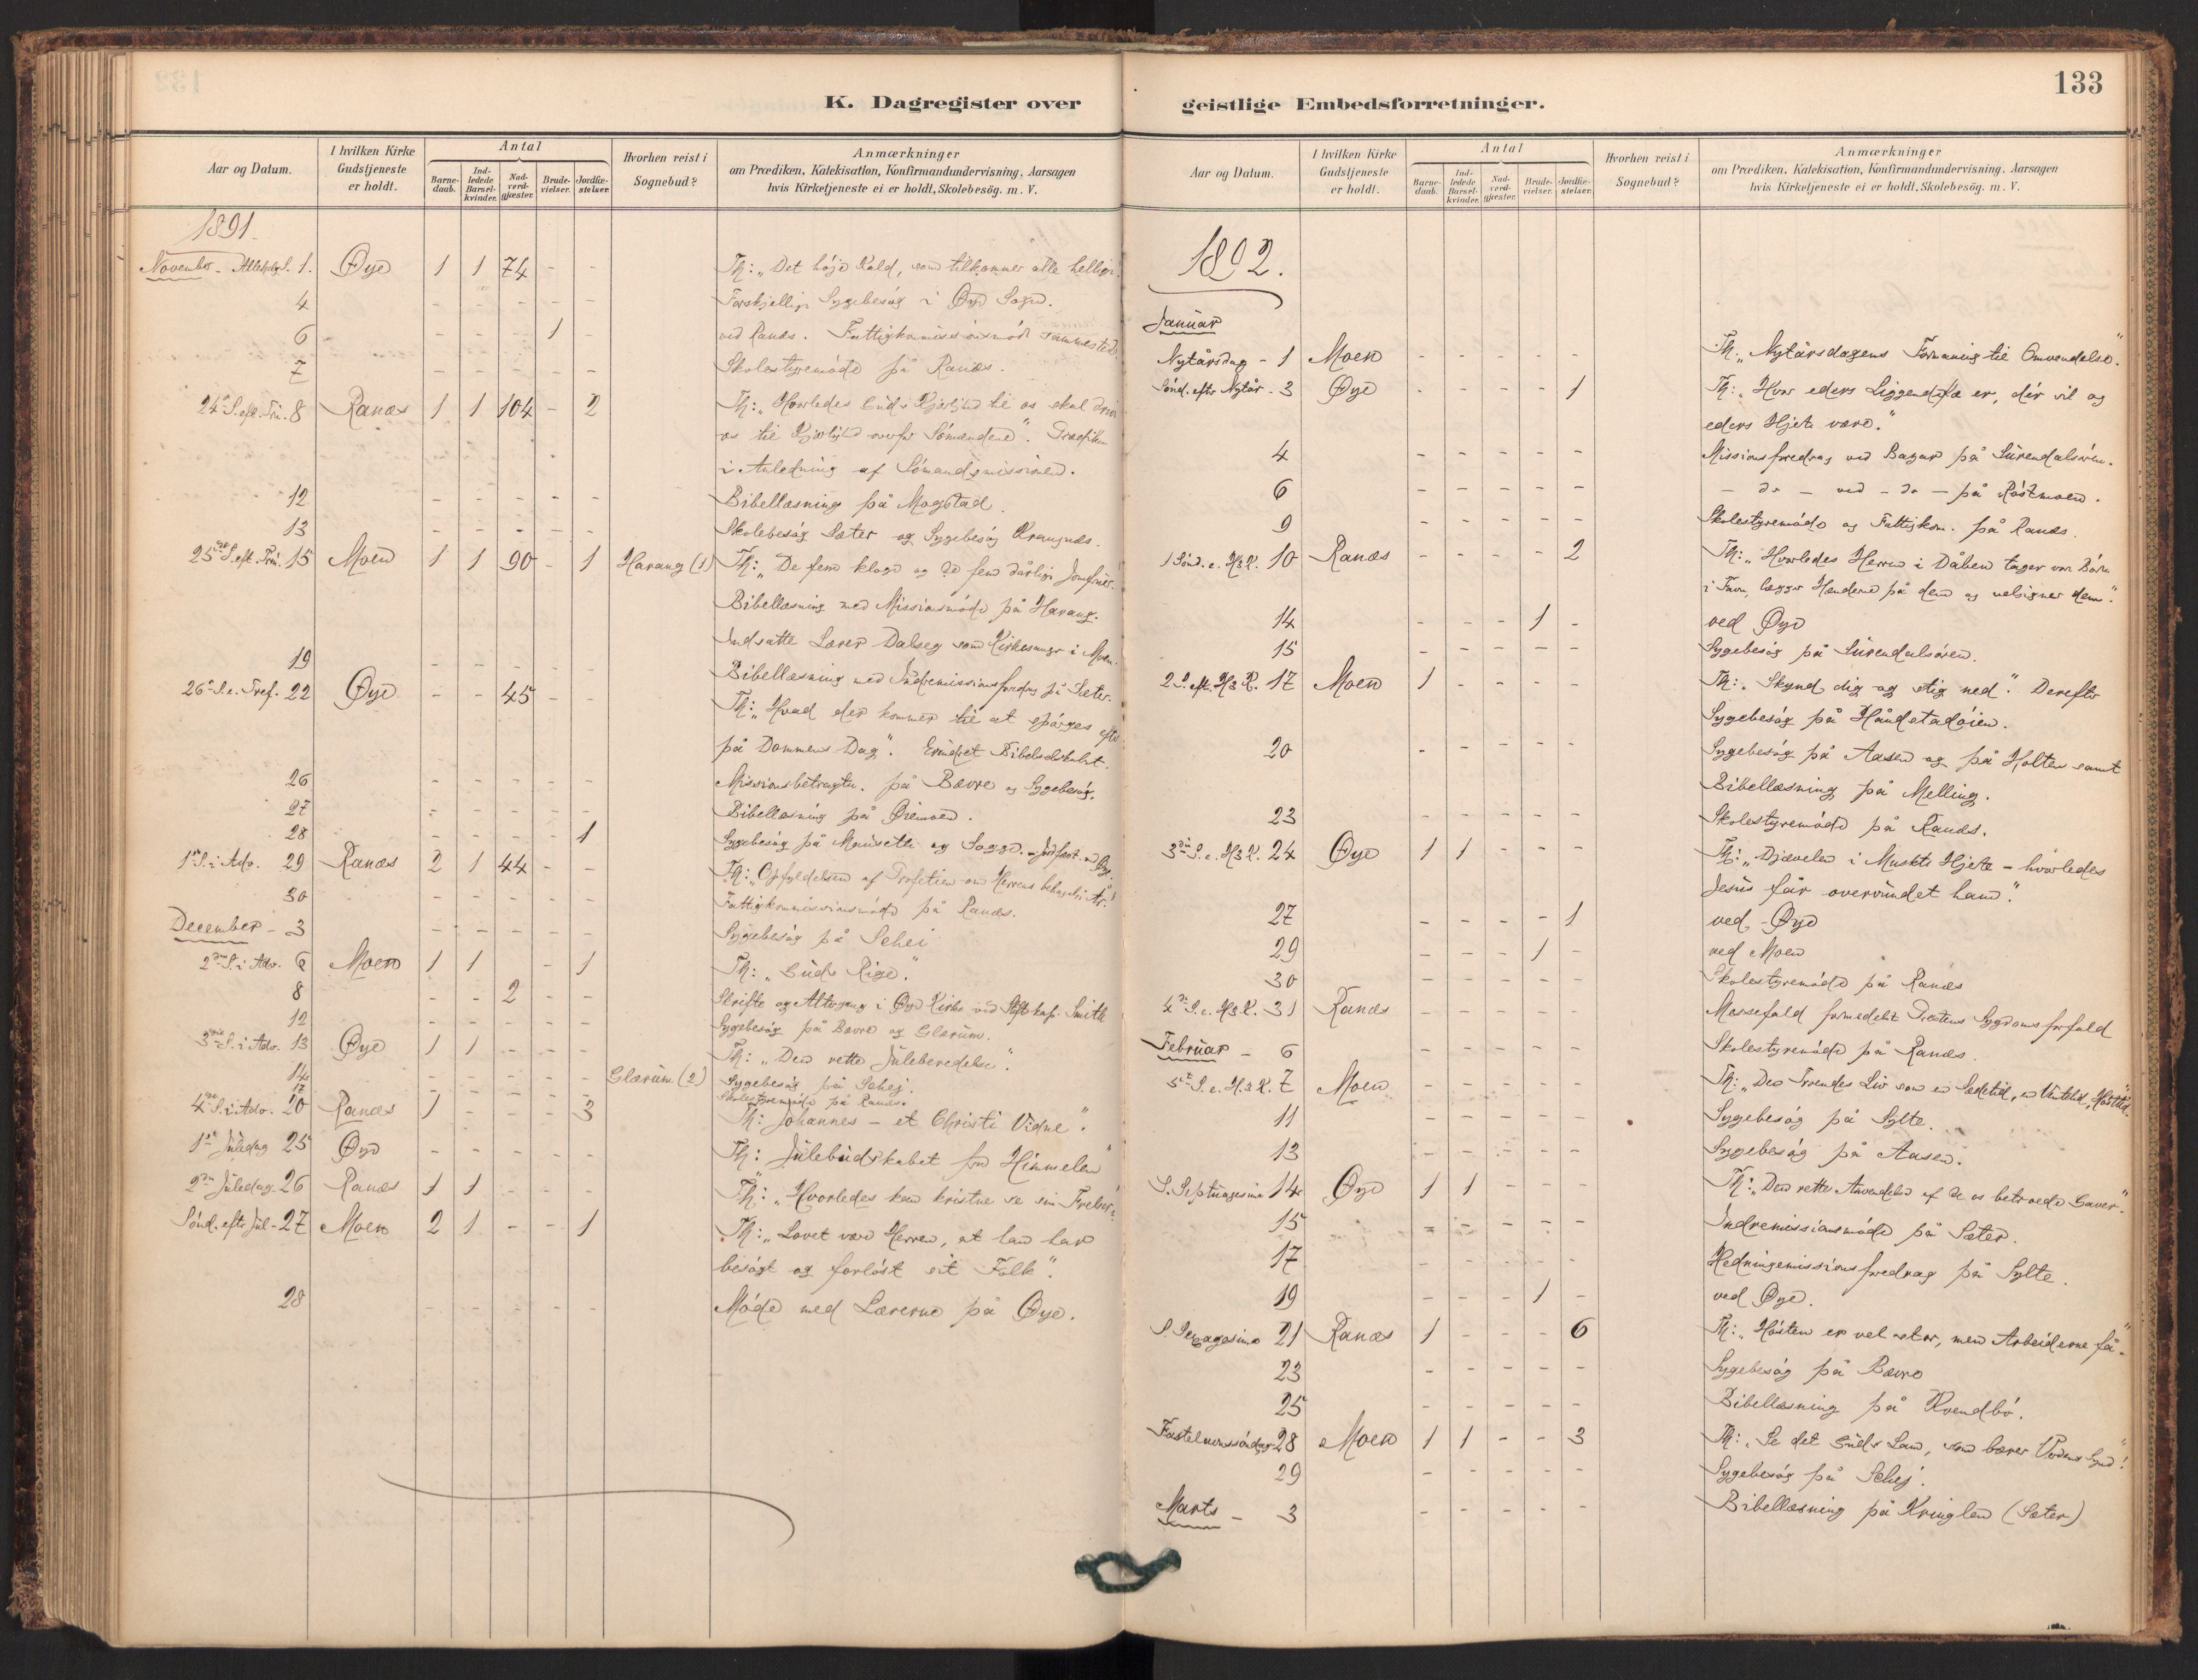 133
K. Dagregister over geistlige Embedsforretninger.
Aar og Datum. I hvilken Kirke Gudstjeneste er holdt. Antal Barnedaab. Indledede Barselkvinder. Nadverdgjæster. Brudevielser. Jordfæstelser. Hvorhen reist i Sognebud? Anmærkninger om Prædiken, Katekisation, Konfirmandundervisning, Aarsagen hvis Kirketjeneste ei er holdt, Skolebesög. m. V.
1891.
November - Allehelg. S. 1. Øye 1 1 74 - - Th: „Det høje Kald, som tilkommer alle hellige.
4 - - - - - Forskjellige Sygebesøg i Øye Sogn.
6 - - - 1 - ved Ranæs. Fattigkommissionsmøde sammesteds
7 - - - - - Skolestyremøde på Ranæs.
24de S. eft. Tri. 8 Ranæs 1 1 104 - 2 Th: „Hvorledes Guds Kjærlighed til os skal drive
os til Kjærlighed overfor Sømændene". Prædiken
i Anledning af Sømandsmissionen.
12 - - - - - Bibellæsning på Mogstad.
13 - - - - - Skolebesøg Sæter og Sygebesøg Krangnæs.
25de S. eft. Tri. 15 Moen 1 1 90 - 1 Harang (1) Th: „De fem kloge og de fem dårlige Jomfruer.
Bibellæsning med Missionsmøde på Harang.
Indsatte Lærer Dalseg som Kirkesanger i Moen.
19 - - - - - Bibellæsning med Indremissionsforedrag på Sæter.
26de S. e. Tref. 22 Øye - - 45 - - Th: „Hvad der kommer til at spørges efter
på Dommens Dag". Erindret Bibelselskabet.
26 - - - - - Missionsbetragtn. på Bævre og Sygebesøg.
27 - - - - - Bibellæsning på Øiemoen.
28 - - - - 1 Sygebesøg på Mauseth og Sogge. - Jordfæst. ved Øye.
1ste S. i Adv. 29 Ranæs 2 1 44 - - Th: „Opfyldelsen af Profetien om Herrens behagelige År.
30 - - - - - Fattigkommissionsmøde på Ranæs.
December - 3 - - - - - Sygebesøg på Schei
2den S. i Adv. 6 Moen 1 1 - 1 Th: „Guds Rige."
8 - - 2 - - Skrifte og Altergang i Øye Kirke ved Stiftskap. Smith
12 - - - - - Sygebesøg på Bævre og Glærum.
3die S. i Adv. 13 Øye 1 1 - - - Th: „Den rette Juleberedelse".
14 - - - - - Glærum (2) Sygebesøg på Schej.
17 Skolestyremøde på Ranæs.
4de S. i Adv. 20 Ranæs 1 - - - 3 Th: Johannes - et Christi Vidne".
1ste Juledag 25 Øye - - - - - Th: Julebudskabet fra Himmelen"
2den Juledag 26 Ranæs 1 1 - - - Th: „Hvorledes kan kristne se sin Frelser"
Sønd. efter Jul - 27 Moen 2 1 - - 1 Th: „Lovet være Herren, at han har
besøgt og forløst sit Folk".
28 - - - - - Møde med Lærerne på Øye.
Aar og Datum. I hvilken Kirke Gudstjeneste er holdt. Antal Barnedaab. Indledede Barselkvinder. Nadverdgjæster. Brudevielser. Jordfæstelser. Hvorhen reist i Sognebud? Anmærkninger om Prædiken, Katekisation, Konfirmandundervisning, Aarsagen hvis Kirketjeneste ei er holdt, Skolebesög. m. V.
1892.
Januar
Nytårsdag - 1 Moen - - - - - Th: „Nytårsdagens Formaning til Omvendelse."
Sønd. eftr Nytår - 3 Øye - - - - 1 Th: „Hvor eders Liggendefæ er, dér vil og
eders Hjerte være."
4 - - - - - Missionsforedrag ved Bazar på Surendalsøren.
6 - - - - - - do - ved - do - på Røstmoen.
9 - - - - - Skolestyremøde og Fattigkom. på Ranæs.
1 Sønd. e. H3K. 10 Ranæs - - - - 2 Th: „Hvorledes Herren i Dåben tager vore Børn
i Favn, lægger Hænderne på dem og velsigner dem".
14 - - - 1 - ved Øye
15 - - - - - Sygebesøg på Surendalsøren.
2 S. eft. H3K. 17 Moen 1 - - - - Th: „Skynd dig og stig ned". Derefter
Sygebesøg på Håndstadøien.
20 - - - - - Sygebesøg på Aasen og på Holten samt
Bibellæsning på Melling.
23 - - - - - Skolestyremøde på Ranæs.
3die S. e. H3K. 24 Øye 1 1 - - - Th: „Djævelen i Mnskts Hjerte - hvorledes
Jesus får overvundet ham".
27 - - - - 1 ved Øye
29 - - - 1 - ved Moen
30 - - - - - Skolestyremøde på Ranæs
4de S. e. H3K. 31 Ranæs - - - - - Messefald formedelst Præstens Sygdomsforfald
Februar - 6 - - - - - Skolestyremøde på Ranæs.
5te S. e. H3K. 7 Moen - - - - - Th: „Den Troendes Liv som en Sædetid, en Ventetid, Høsttid.
11 - - - - - Sygebesøg på Sylte.
13 - - - - - Sygebesøg på Aasen.
S. Septuagesima 14 Øye 1 1 - - - Th: „Den rette Anvendelse af de os betroede Gaver."
15 - - - - - Indremissionsmøde på Sæter.
17 - - - - - Hedningemissionsforedrag på Sylte.
19 - - - 1 - ved Øye.
S. Sexagesima 21 Ranæs 1 - - - 6 Th: „Høsten er vel stor, men Arbeiderne få".
23 - - - - - Sygebesøg på Bævre
25 - - - - - Bibellæsning på Kvendbø.
Fastelavnssøndag 28 Moen 1 1 - - 3 Th: „Se det Guds Lam, som bærer Verdens Synd!
29 - - - - - Sygebesøg på Schej.
Marts - 3 - - - - - Bibellæsning på Kringlen (Sæter)